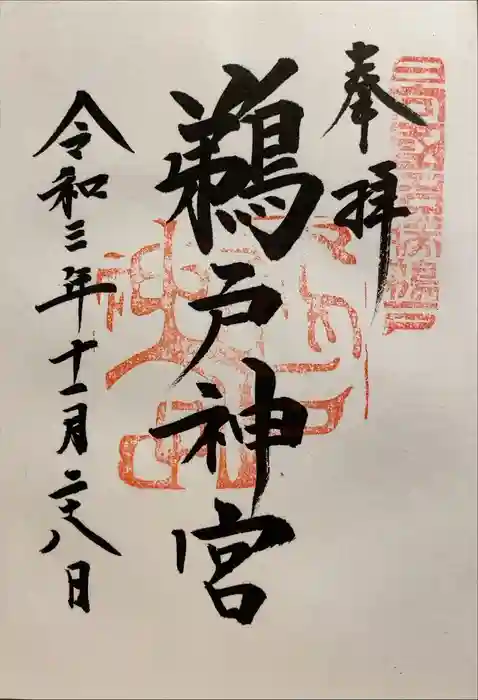 奉拝
鵜戸神宮
令和三年十一月二十八日